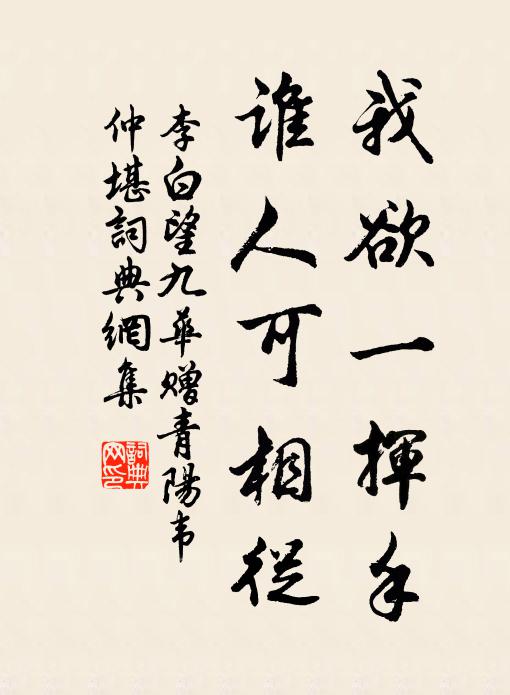 我欲一揮手
谁人可相從
李白望九華赠青陽韦
仲堪詞典網集
詞典
网印